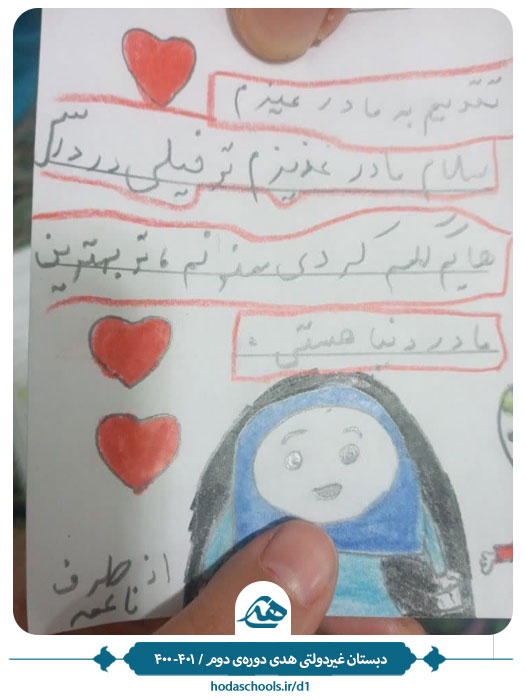 تقدیم به مادر عیزم
سلام مادر عذیزم تو خیلی در درس
هایم کمم کردی ممنونم، تو بهترین
مادر دنیا هستی.
از طرف
فاطمه
هدی
دبستان غیردولتی هدی دوره‌ی دوم / ۴۰۱-۴۰۰
hodaschools.ir/d1